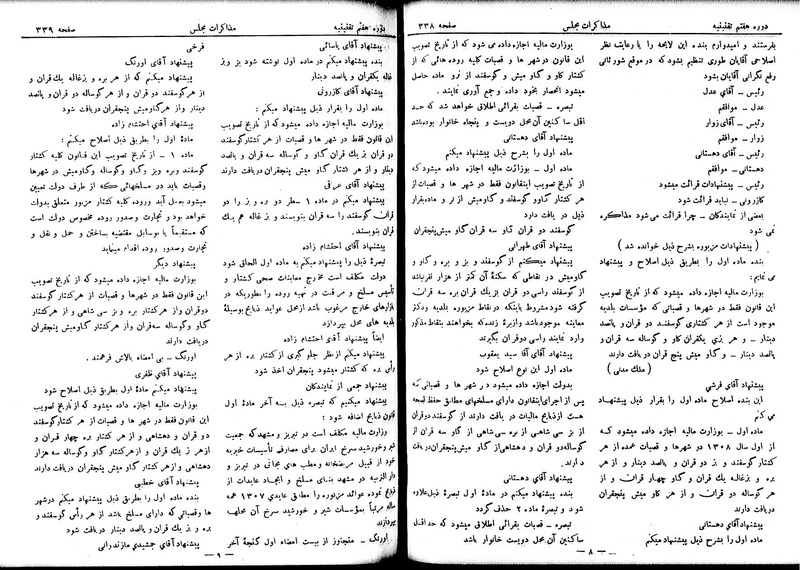 دوره هفتم تقنینیه مذاکرات مجلس صفحه ۳۳۸
بفرستند و امیدوارم بنده این لایحه را با رعایت نظر
اصلاحی آقایان طوری تنظیم بشود که در موقع شور ثانی
رفع نگرانی آقایان بشود
رئیس - آقای عدل
عدل - موافقم
رئیس - آقای زوار
زوار - موافقم
رئیس - آقای دهستانی
دهستانی - موافقم
رئیس - پیشنهادات قرائت میشود
کازرونی - نباید قرائت شود
بعضی از نمایندگان - چرا قرائت می شود مذاکره
نمی شود
( پیشنهادات مزبوره بشرح ذیل خوانده شد )
بنده ماده اول را بطریق ذیل اصلاح و پیشنهاد
می نمایم :
بوزارت مالیه اجازه داده میشود که از تاریخ تصویب
این قانون فقط در شهرها و قصباتی که مؤسسات بلدیه
موجود است از هر کشتاری گوسفند دو قران و پانصد
دینار - و هر بزی یکقران و گاو و گوساله سه قران و
پانصد دینار - و گاو میش پنج قران دریافت دارند
( ملک مدنی )
پیشنهاد آقای فرشی
این بنده اصلاح ماده اول را بقرار ذیل پیشنهاد
می کنم
ماده اول - بوزارت مالیه اجازه داده میشود که
از اول سال ۱۳۰۸ در شهرها و قصبات عمده از هر
کشتار گوسفند و بز دو قران و پانصد دینار و از هر
بره و بزغاله یك قران و گاو چهار قران و از
هر گوساله دو قران و از هر گاو میش پنجقران
دریافت دارند
پیشنهاد آقای دهستانی
ماده اول را بشرح ذیل پیشنهاد میکنم
بوزارت مالیه اجازه داده می شود که از تاریخ تصویب
این قانون در شهرها و قصبات کلیه روده هائی که از
کشتار گاو و گاو میش و گوسفند از نرو ماده حاصل
میشود انحصار بخود داده و جمع آوری نمایند .
تبصره - قصبات بقرائی اطلاق خواهد شد که حد
اقل ساکنین آن محل دویست و پنجاه خانوار بوده باشد
پیشنهاد آقای دهستانی
ماده اول را بشرح ذیل پیشنهاد میکنم
ماده اول - بوزارت مالیه اجازه داده میشود که
از تاریخ تصویب اینقانون فقط در شهرها و قصبات از
هر کشتار گاو و گوسفند و گاومیش از نر و ماده بقرار
ذیل در یافت دارد
گوسفند دو قران گاو سه قران گاو میش پنجقران
پیشنهاد آقای طهرانی
پیشنهاد میکنم از گوسفند و بز و بره و گاو و
گاومیش در نقاطی که سکنهٔ آن کمتر از هزار نفر نباشد
از گوسفند راسی دو قران بز یك قران بره سه قران
گرفته شود مشروط باینکه در نقاط مزبوره بلدیه و دکتر
معاینه موجود باشد و از بزه زنده که بخواهند بنقاط مذکور
وارد نمایند راسی دو قران بگیرند
پیشنهاد آقای آقا سید یعقوب
ماده اول این نوع اصلاح شود
بدولت اجازه داده میشود در شهرها و قصباتی که
پس از اجرای اینقانون دارای مسلخهای مطابق حفظ الصحه
هست از ذبایح مالیات دریافت دارند از گوسفند دو قران
از بز سی شاهی از بره سی شاهی از گاو سه قران از
گوساله دو قران و دهشاهی از گاو میش پنجقران دریافت
دارند .
پیشنهاد آقای دهستانی
بنده پیشنهاد میکنم در مادهٔ اول تبصرهٔ ذیل علاوه
شود و تبصره ماده ۲ حذف گردد
تبصره - قصبات بقرائی اطلاق میشود که حد اقل
ساکنین آن محل دویست خانوار باشد
- ۸ -
دوره هفتم تقنینیه مذاکرات مجلس صفحه ۳۳۹
پیشنهاد آقای یاسائی
بنده پیشنهاد میکنم در ماده اول نوشته شود بز و بز
غاله یکقران و پانصد دینار
پیشنهاد آقای کازرونی
ماده اول را بقرار ذیل پیشنهاد میکنم :
بوزارت مالیه اجازه داده میشود که از تاریخ تصویب
این قانون فقط در شهر ها و قصبات از هر کشتار گوسفند
دو قران بز یك قران گاو و گوساله سه قران و پانصد
دینار و از هر کشتار گاو میش پنجقران دریافت دارند
پیشنهاد آقای عراقی
پیشنهاد میکنم در ماده ۱ - سطر دو بره و بز را دو
قران گوسفند را سه قران بنویسند و بز غاله هم یك
قران بنویسند .
پیشنهاد آقای احتشام زاده
تبصرهٔ ذیل را پیشنهاد میکنم به ماده اول الحاق شود
دولت مکلف است مخارج معاینات صحی کشتار و
تأسیس مسلخ و مراقبت در تهیه روده را بطوریکه در
بازارهای خارج مرغوب باشد از محل عواید ذبایح بوسیلهٔ
بلدیه های محل بپردازد
ایضاً پیشنهاد آقای احتشام زاده
پیشنهاد میکنم از نظر جلو گیری از کشتار بره از هر
رأس بره که کشتار میشود پنجقران اخذ شود
پیشنهاد جمعی از نمایندگان
پیشنهاد میکنیم که تبصره ذیل بسه آخر مادهٔ اول
قانون ذبایح اضافه شود :
وزارت مالیه مکلف است در تبریز و مشهد که جمعیت
شیر و خورشید سرخ ایران برای مصارف تأسیسات خیریه
خود از قبیل مریضخانه و مطب های مجانی در تبریز و
دار التربیه در مشهد بنای مسلخ و ایجاد عایدات از
ذبایح نموده عوائد مزبوره را مطابق عایدی ۱۳۰۷ همه
ماهه مرتباً بمؤسسات شیر و خورشید سرخ آن محلها
بپردازند
اورنگ - متجاوز از بیست امضاء اول گنجهٔ آخر
فرخی
پیشنهاد آقای اورنگ
پیشنهاد میکنم که از هر بره و بزغاله یك قران و
از هر گوسفند دو قران و از هر گاو دو قران و پانصد
دینار و از هر گاومیش پنجقران دریافت شود
پیشنهاد آقای احتشام زاده
مادهٔ اول را بطریق ذیل اصلاح میکنم :
ماده ۱ - از تاریخ تصویب این قانون کلیه کشتار
گوسفند و بره و بز و گاو و گوساله و گاومیش در شهرها و
قصبات باید در مسلخهائی که از طرف دولت تعیین
میشود بعمل آید و روده کلیه کشتار مزبور متعلق بدولت
خواهد بود و تجارت و صدور روده مخصوص دولت است
که مستقیماً یا بوسایل مقتضیه بساختن و حمل و نقل و
تجارت و صدور روده اقدام مینماید
پیشنهاد دیگر
بوزارت مالیه اجازه داده میشود که از تاریخ تصویب
این قانون فقط در شهرها و قصبات از هر کشتار گوسفند
دو قران و از هر کشتار بره و بز سی شاهی و از هر کشتار
گاو و گوساله سه قران و از هر کشتار گاومیش پنجقران
دریافت دارند
اورنگ - بی امضاء بالاش فرهمند .
پیشنهاد آقای ظفری
پیشنهاد میکنم مادهٔ اول بطریق ذیل اصلاح شود
بوزارت مالیه اجازه داده میشود که از تاریخ تصویب
این قانون فقط در شهرها و قصبات از هر کشتار گوسفند
دو قران و دهشاهی و از هر کشتار بره چهار قران و
از هر بز یك قران و از هر کشتار گاو و گوساله سه قران و
دهشاهی و از هر کشتار گاو میش پنجقران دریافت دارند
پیشنهاد آقای خطیبی
بنده ماده اول را بطریق ذیل پیشنهاد میکنم در شهر
ها و قصباتی که دارای مسلخ باشد از هر رأس گوسفند و
بره و بز یك قران و پانصد دینار دریافت شود
پیشنهاد آقای جمشیدی مازندرانی
- ۹ -